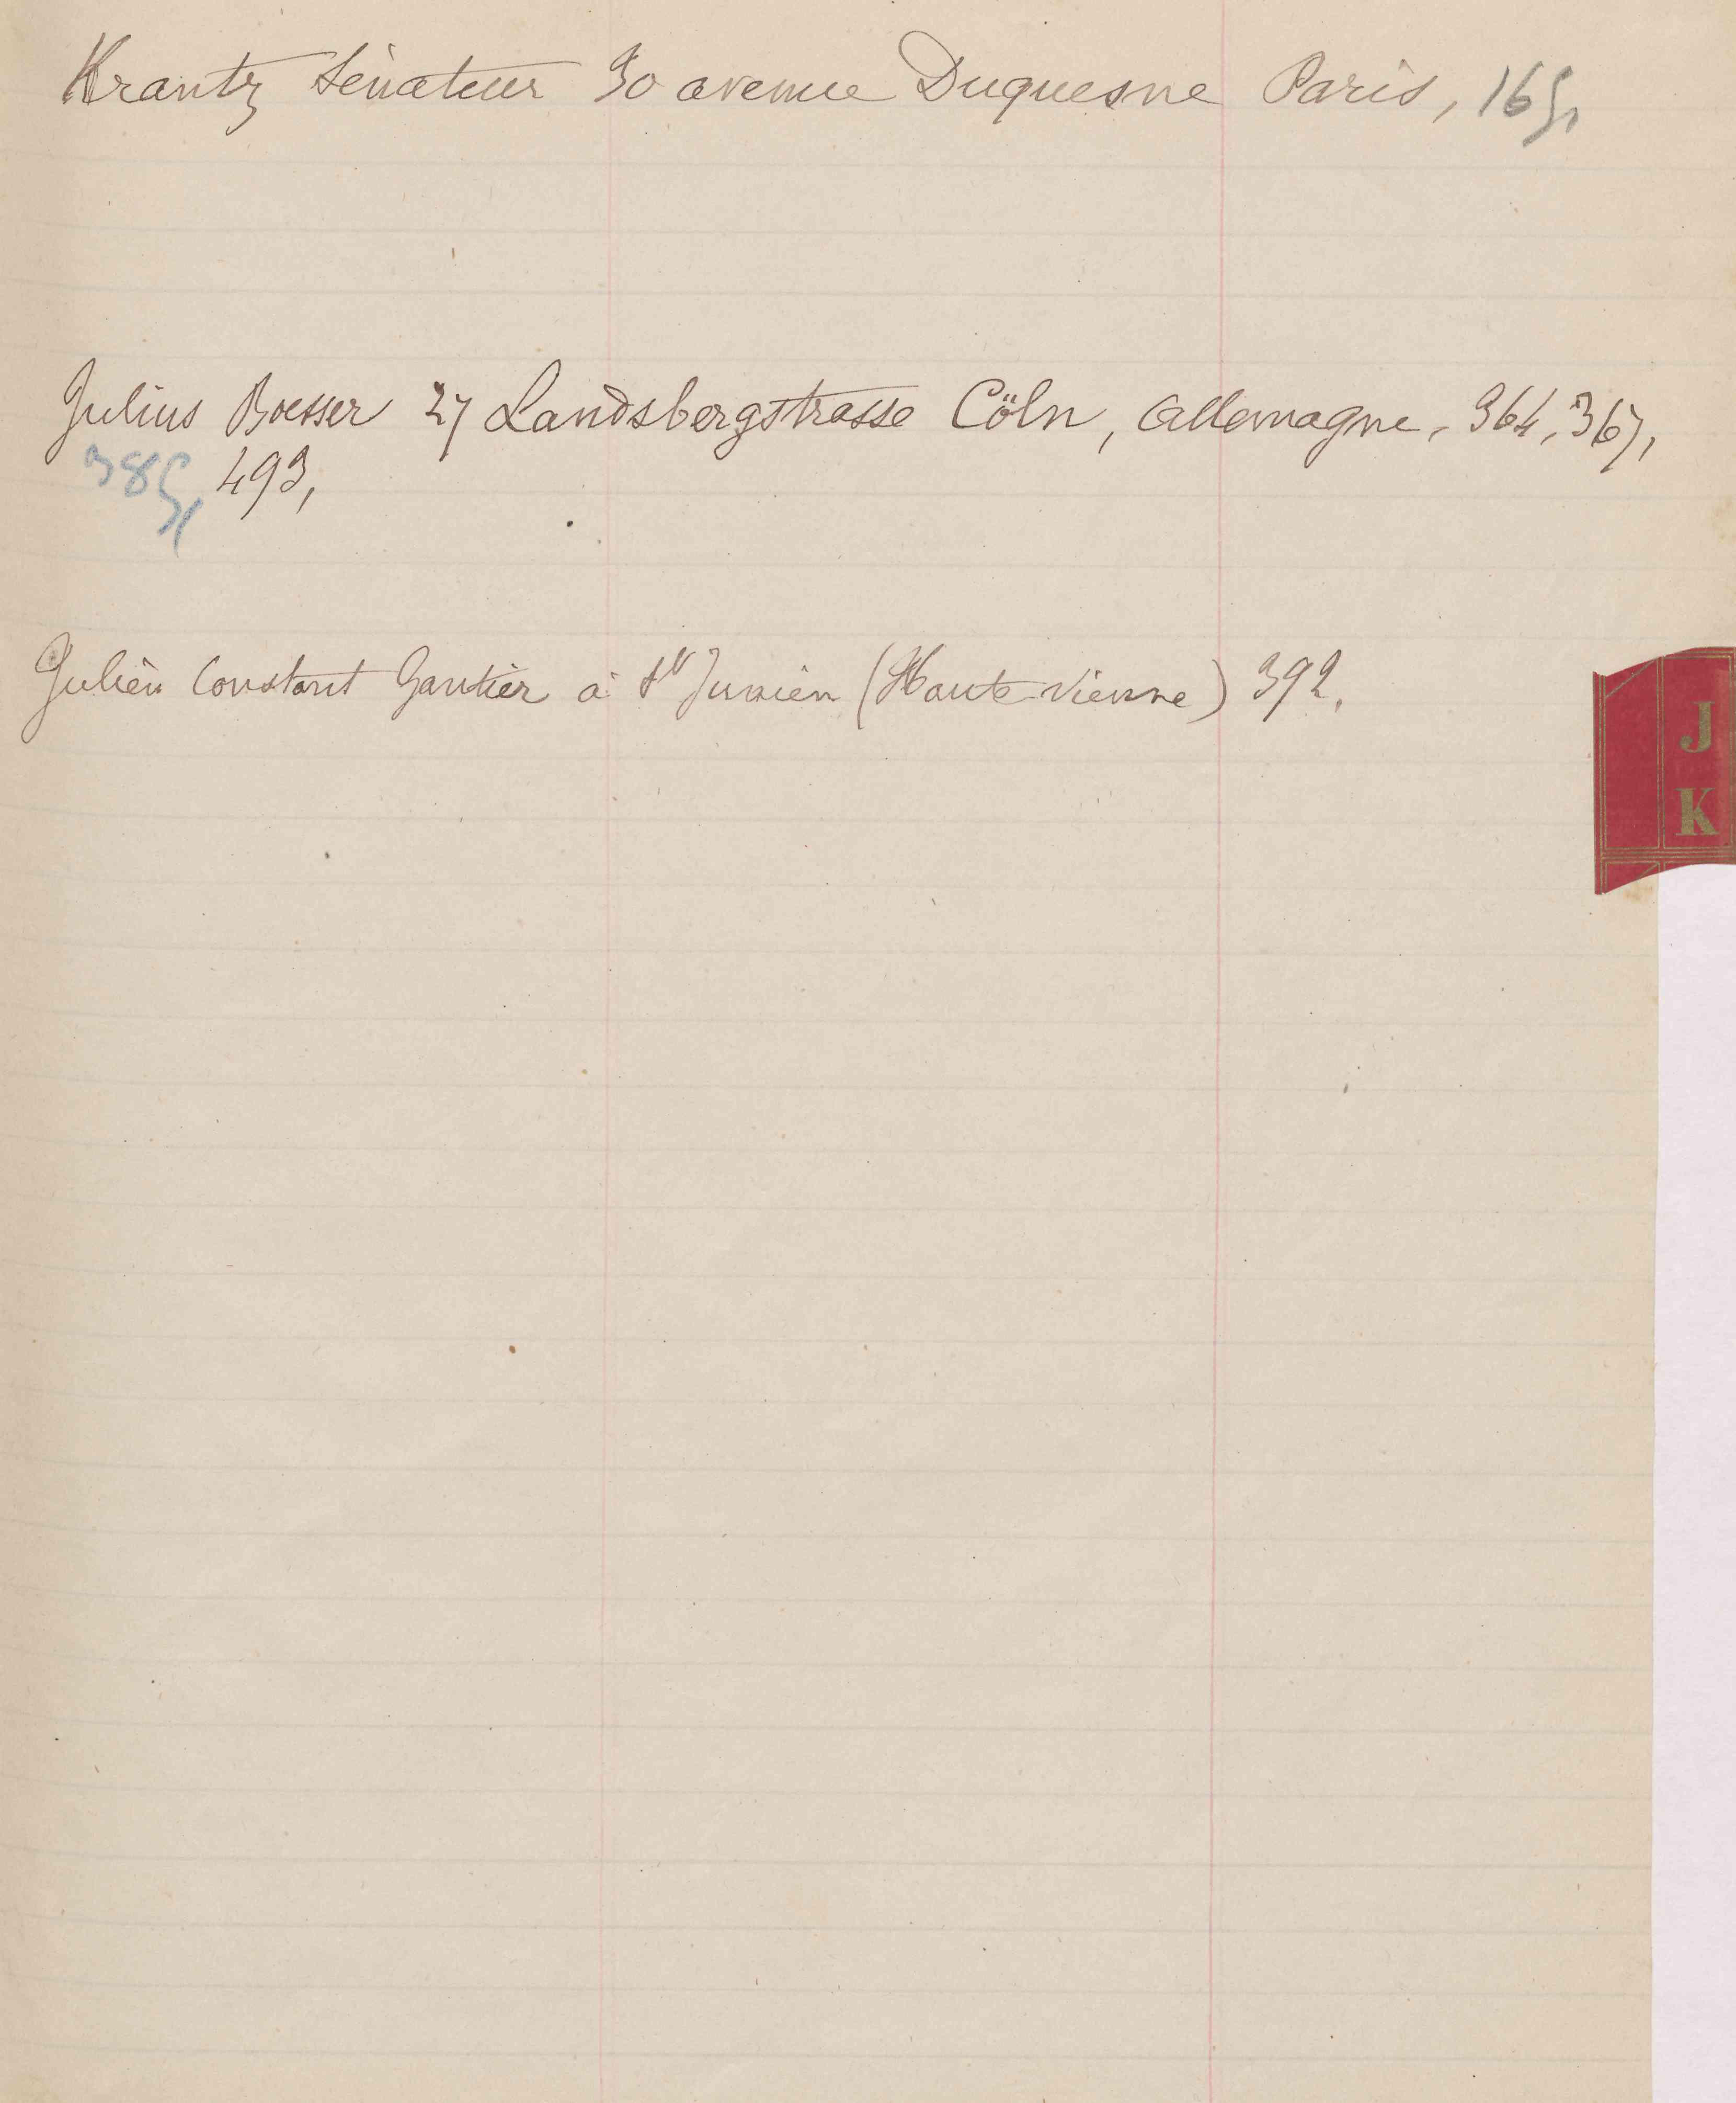 Krantz Sénateur 30 avenue Duquesne Paris, 165,
Julius Boesser 27 Landsbergstrasse Cöln, Allemagne, 364, 367,
385, 493,
Julien Constant Gautier à St Junien (Haute-Vienne) 392,
J
K